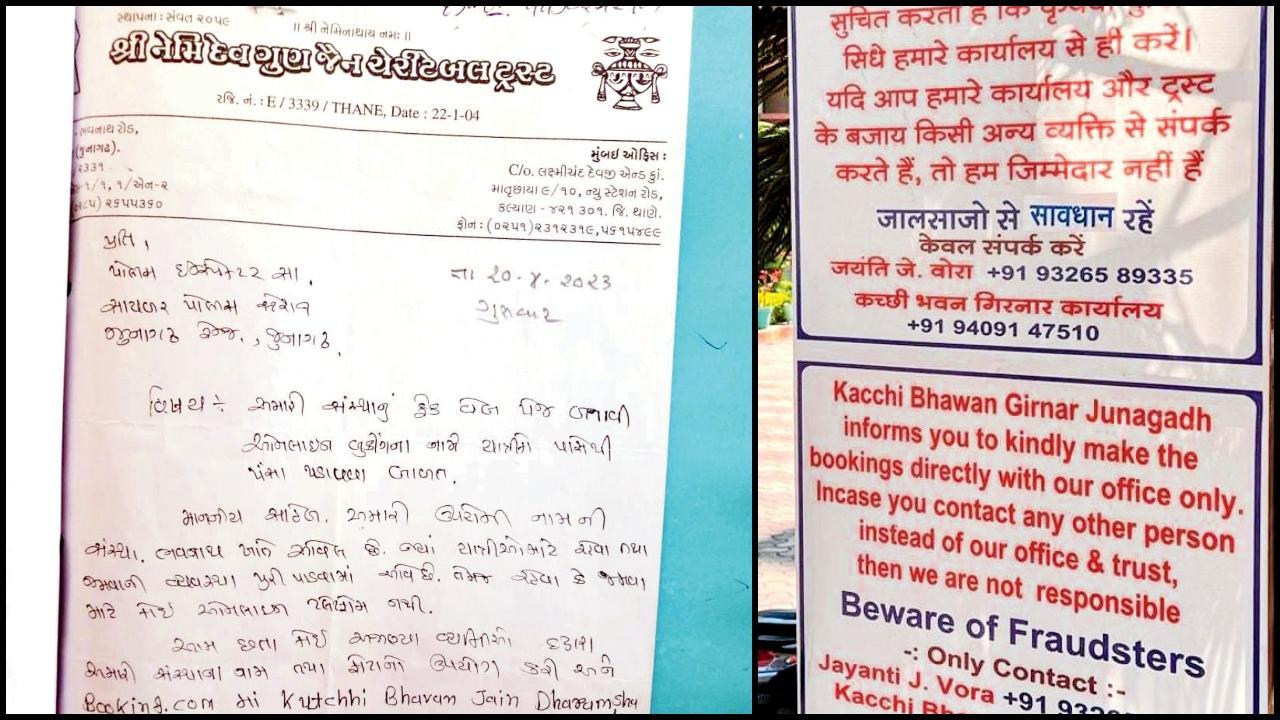 સ્થાપના : સંવત ૨૦૫૯
॥ શ્રી નેમિનાથાય નમઃ ॥
શ્રી નેમિ દેવ ગુણ જૈન ચેરીટેબલ ટ્રસ્ટ
રજિ. નં. : E / 3339 / THANE, Date : 22-1-04
ભવનાથ રોડ,
(જુનાગઢ).
૨૩૩૧
૧/૧, ૧/એન-૨
૨૬૫૫૩૬૦
મુંબઇ ઓફિસ :
C/o. લક્ષ્મીચંદ દેવજી એન્ડ કું.
માતૃછાયા ૯/૧૦, ન્યુ સ્ટેશન રોડ,
કલ્યાણ - ૪૨૧ ૩૦૧. જિ. થાણે.
ફોન : (૦૨૫૧) ૨૩૧૨૩૧૯, ૫૬૧૫૪૯૯
પ્રતિ,
પોલીસ ઇન્સ્પેક્ટર સા.
સાયબર પોલીસ સ્ટેશન
જુનાગઢ રેન્જ., જુનાગઢ.
તા ૨૦.૪.૨૦૨૩
ગુરુવાર
વિષય :- અમારી સંસ્થાનું ફેક પેજ બનાવી
ઓનલાઇન બુકીંગના નામે યાત્રીઓ પાસેથી
પૈસા પડાવવા બાબત.
માનનીય સાહેબ. અમારી ઉપરોક્ત નામ ની
સંસ્થા. ભવનાથ ખાતે આવેલ છે. જ્યાં યાત્રીઓ માટે રહેવા તથા
જમવાની વ્યવસ્થા પુરી પાડવામાં આવે છે. તેમજ રહેવા કે જમવા
માટે કોઈ ઓનલાઇન નથી.
આમ છતા કોઈ અજાણ્યા વ્યક્તિઓ દ્વારા
અમારી સંસ્થાના નામ તથા ફોટાનો ઉપયોગ કરી અને
Booking.com માં Kutchhi Bhavan Jain Dharamsha
सुचित करता है कि कृपया
सिधे हमारे कार्यालय से ही करें।
यदि आप हमारे कार्यालय और ट्रस्ट
के बजाय किसी अन्य व्यक्ति से संपर्क
करते हैं, तो हम जिम्मेदार नहीं हैं
जालसाजो से सावधान रहें
केवल संपर्क करें
जयंति जे. वोरा +91 93265 89335
कच्छी भवन गिरनार कार्यालय
+91 94091 47510
Kacchi Bhawan Girnar Junagadh
informs you to kindly make the
bookings directly with our office only.
Incase you contact any other person
instead of our office & trust,
then we are not responsible
Beware of Fraudsters
-: Only Contact :-
Jayanti J. Vora +91 9326
Kacchi Bh